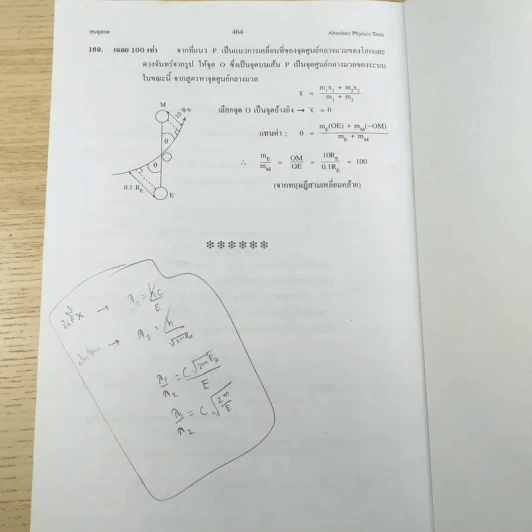 สมดุลกล 464 Absolute Physics Tests
169. เฉลย 100 เท่า จากที่แนว P เป็นแนวการเคลื่อนที่ของจุดศูนย์กลางมวลของโลกและ
ดวงจันทร์จากรูป ให้จุด O ซึ่งเป็นจุดบนเส้น P เป็นจุดศูนย์กลางมวลของระบบ
ในขณะนี้ จากสูตรหาจุดศูนย์กลางมวล
x̄ = (m₁x₁ + m₂x₂) / (m₁ + m₂)
M
10 R_E
เลือกจุด O เป็นจุดอ้างอิง → x̄ = 0
θ
แทนค่า ; 0 = (m_E(OE) + m_M(-OM)) / (m_E + m_M)
θ
∴ m_E/m_M = OM/OE = 10R_E/0.1R_E = 100
0.1 R_E
E
(จากทฤษฎีสามเหลี่ยมคล้าย)
******
รังสี X → λ₁ = hc/E
→ λ₂ = h/√2mE_k
λ₁/λ₂ = C√2mE_k/E
λ₁/λ₂ = C√2m/E